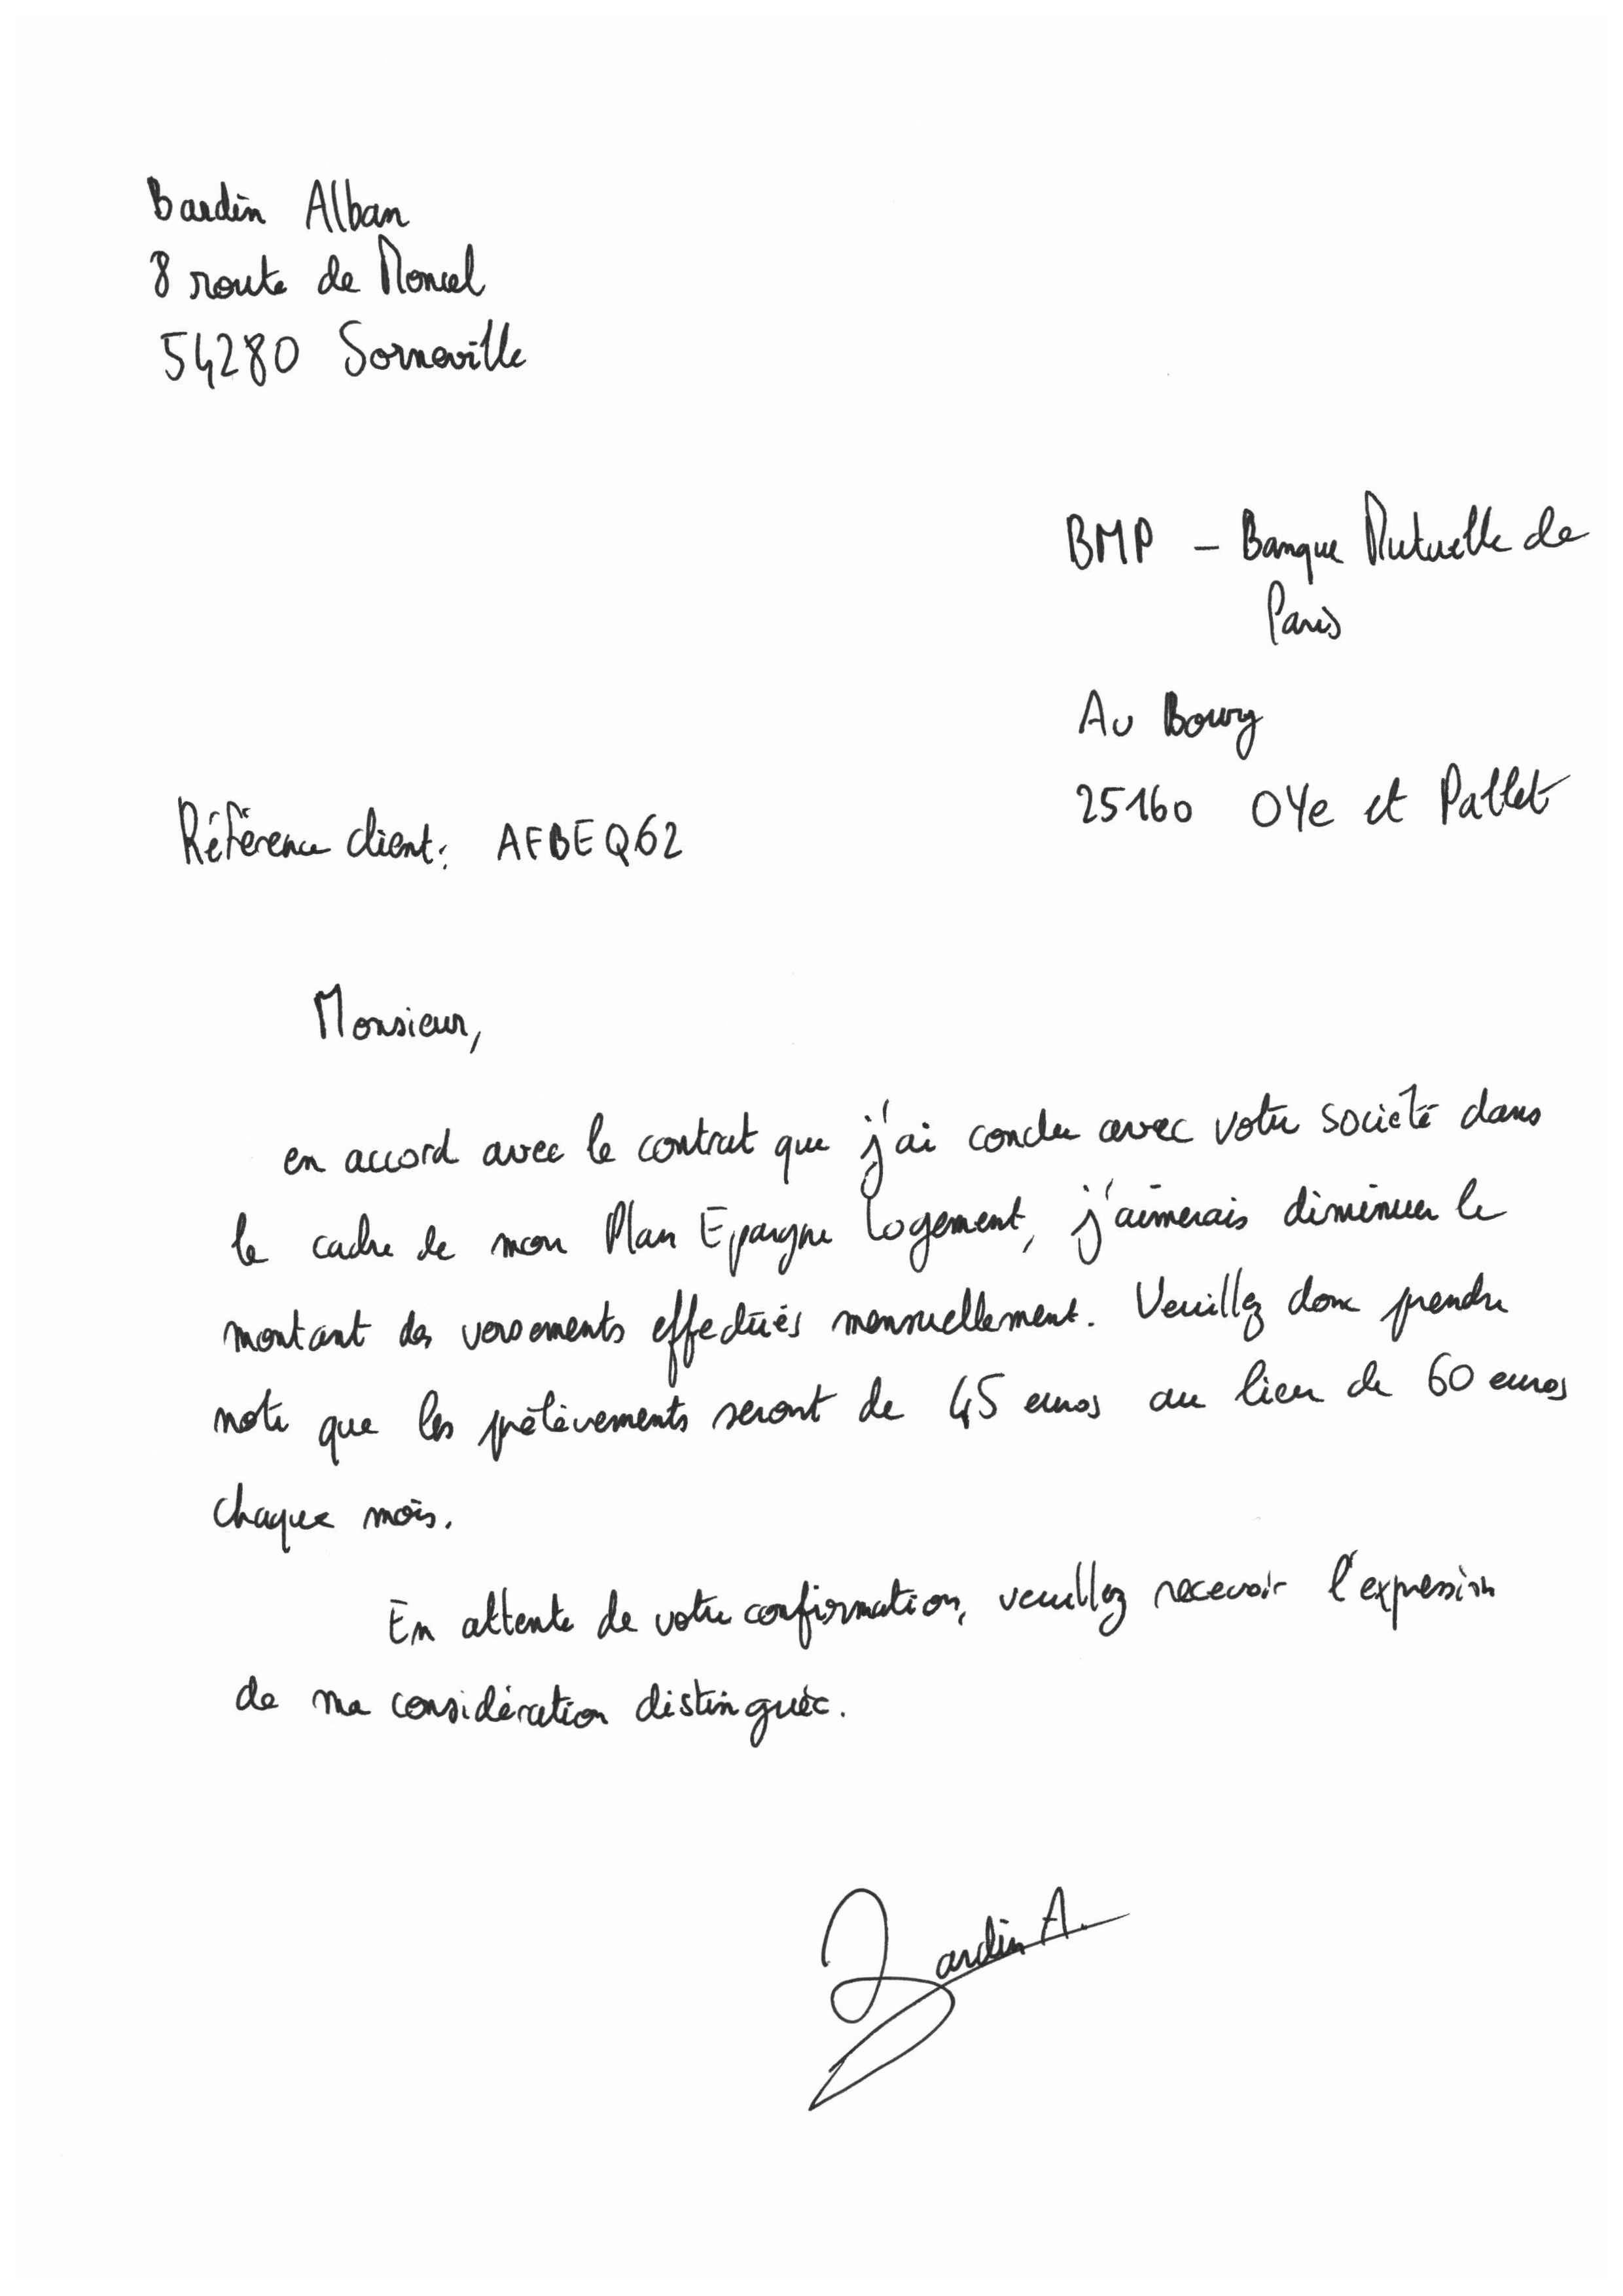 Bardin Alban
8 route de Moncel
54280 Sorneville
BMP - Banque Mutuelle de
Paris
Au Bourg
25160 OYe et Pallet
Référence client: AFBEQ62
Monsieur,
en accord avec le contrat que j'ai conclu avec votre société dans
le cadre de mon Plan Epargne Logement, j'aimerais diminuer le
montant des versements effectués mensuellement. Veuillez donc prendre
note que les prélèvements seront de 45 euros au lieu de 60 euros
chaque mois.
En attente de votre confirmation, veuillez recevoir l'expression
de ma considération distinguée.
Bardin A.